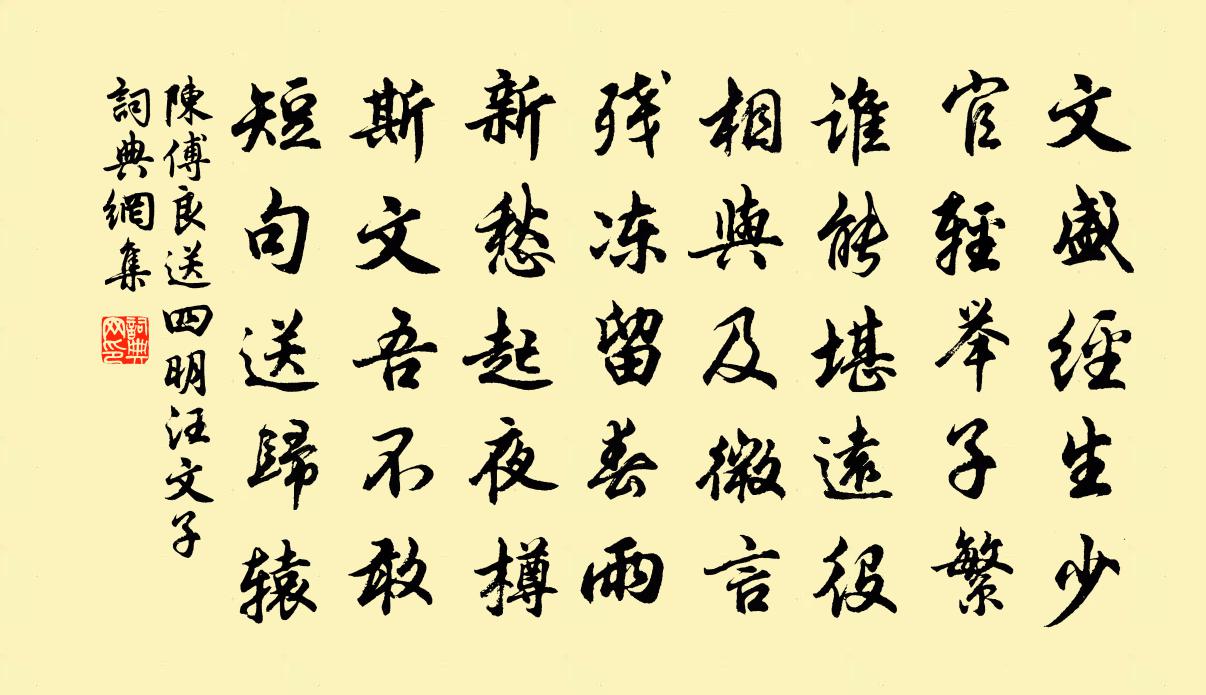 文盛經生少
官輕举子繁
誰能堪遠役
相與及微言
残冻留春雨
新愁起夜樽
斯文吾不敢
短句送歸辕
陳傅良送四明汪文子
詞典網集
詞典网印